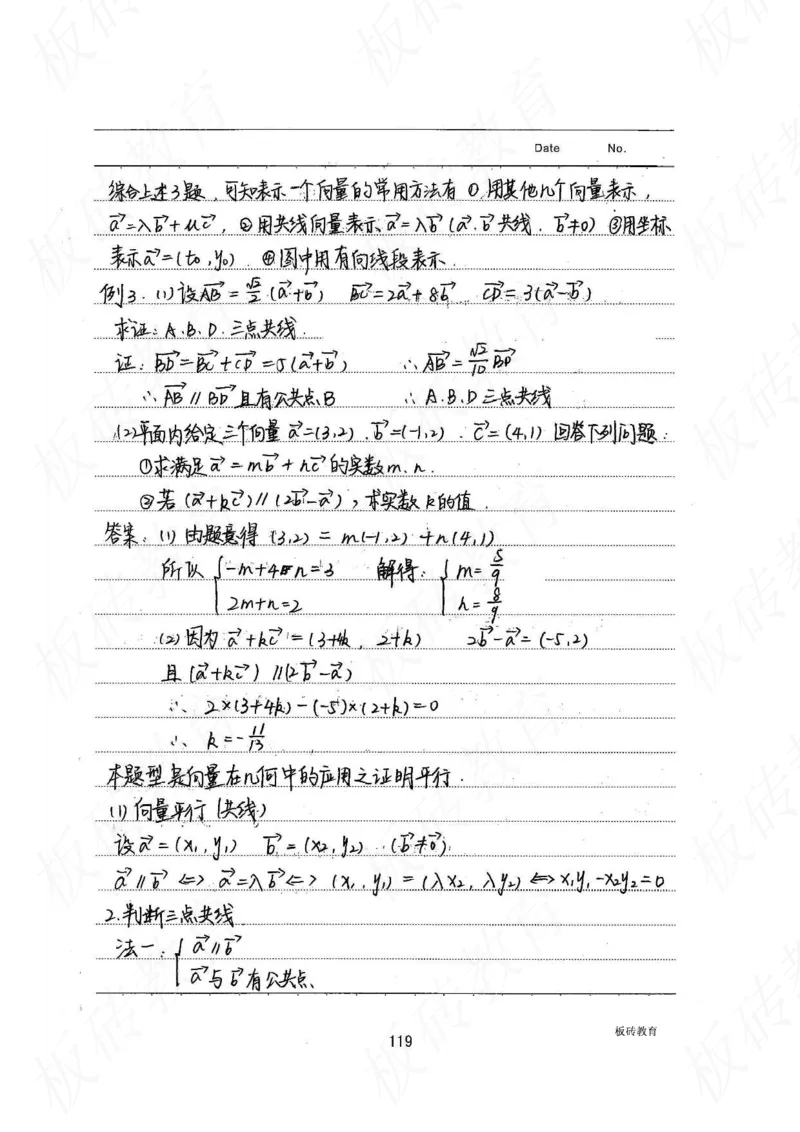 Date No.
综合上述3题，可知表示一个向量的常用方法有 ①.用其他几个向量表示，
a⃗=λb⃗+μc⃗，②用共线向量表示 a⃗=λb⃗ (a⃗.b⃗共线．b⃗≠0) ③用坐标
表示a⃗=(to,y0) ．④图中用有向线段表示
例3．(1)设AB⃗=√2/2(a⃗+b⃗) BC⃗=2a⃗+8b⃗ CD⃗=3(a⃗-b⃗)
求证：A.B.D.三点共线．
证：BD⃗=BC⃗+CD⃗=5(a⃗+b⃗) ∴AB⃗=√2/10 BD⃗
∴AB⃗∥BD⃗且有公共点B ∴A.B.D三点共线
(2)平面内给定三个向量 a⃗=(3,2)．b⃗=(-1,2)．c⃗=(4,1) 回答下列问题：
①求满足a⃗=mb⃗+nc⃗的实数m.n.
②若(a⃗+kc⃗)∥(2b⃗-a⃗)，求实数k的值．
答案：(1) 由题意得 (3,2)=m(-1,2)+n(4,1)
所以 {-m+4n=3 解得：{m=5/9
2m+n=2 n=8/9
(2)因为a⃗+kc⃗=(3+4k，2+k) 2b⃗-a⃗=(-5,2)
且(a⃗+kc⃗)∥(2b⃗-a⃗)
∴ 2×(3+4k)-(-5)×(2+k)=0
∴ k=-11/13
本题型是向量在几何中的应用之证明平行．
(1)向量平行(共线)
设a⃗=(x1,y1) b⃗=(x2,y2) (b⃗≠0⃗)
a⃗∥b⃗⇔a⃗=λb⃗⇔(x1,y1)=(λx2,λy2)⇔x1y1-x2y2=0
2.判断三点共线
法一：{a⃗∥b⃗
a⃗与b⃗有公共点、
119
板砖教育